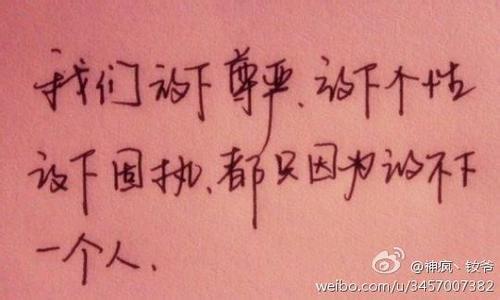 我们放下尊严、放下个性
放下固执、都只因为放不下
一个人.
@神疯丶钕爷
weibo.com/u/3457007382